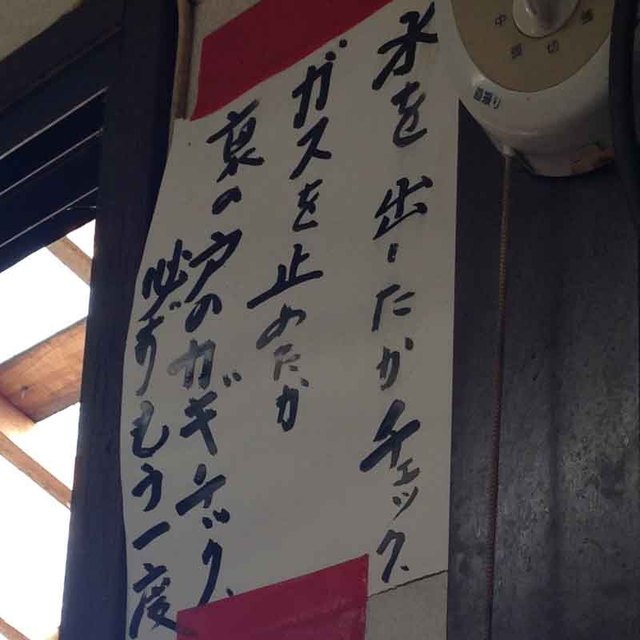 水を出したかチェック、
ガスを止めたか
裏の戸のガギチェック、
必ずもう一度
中
切
首振り